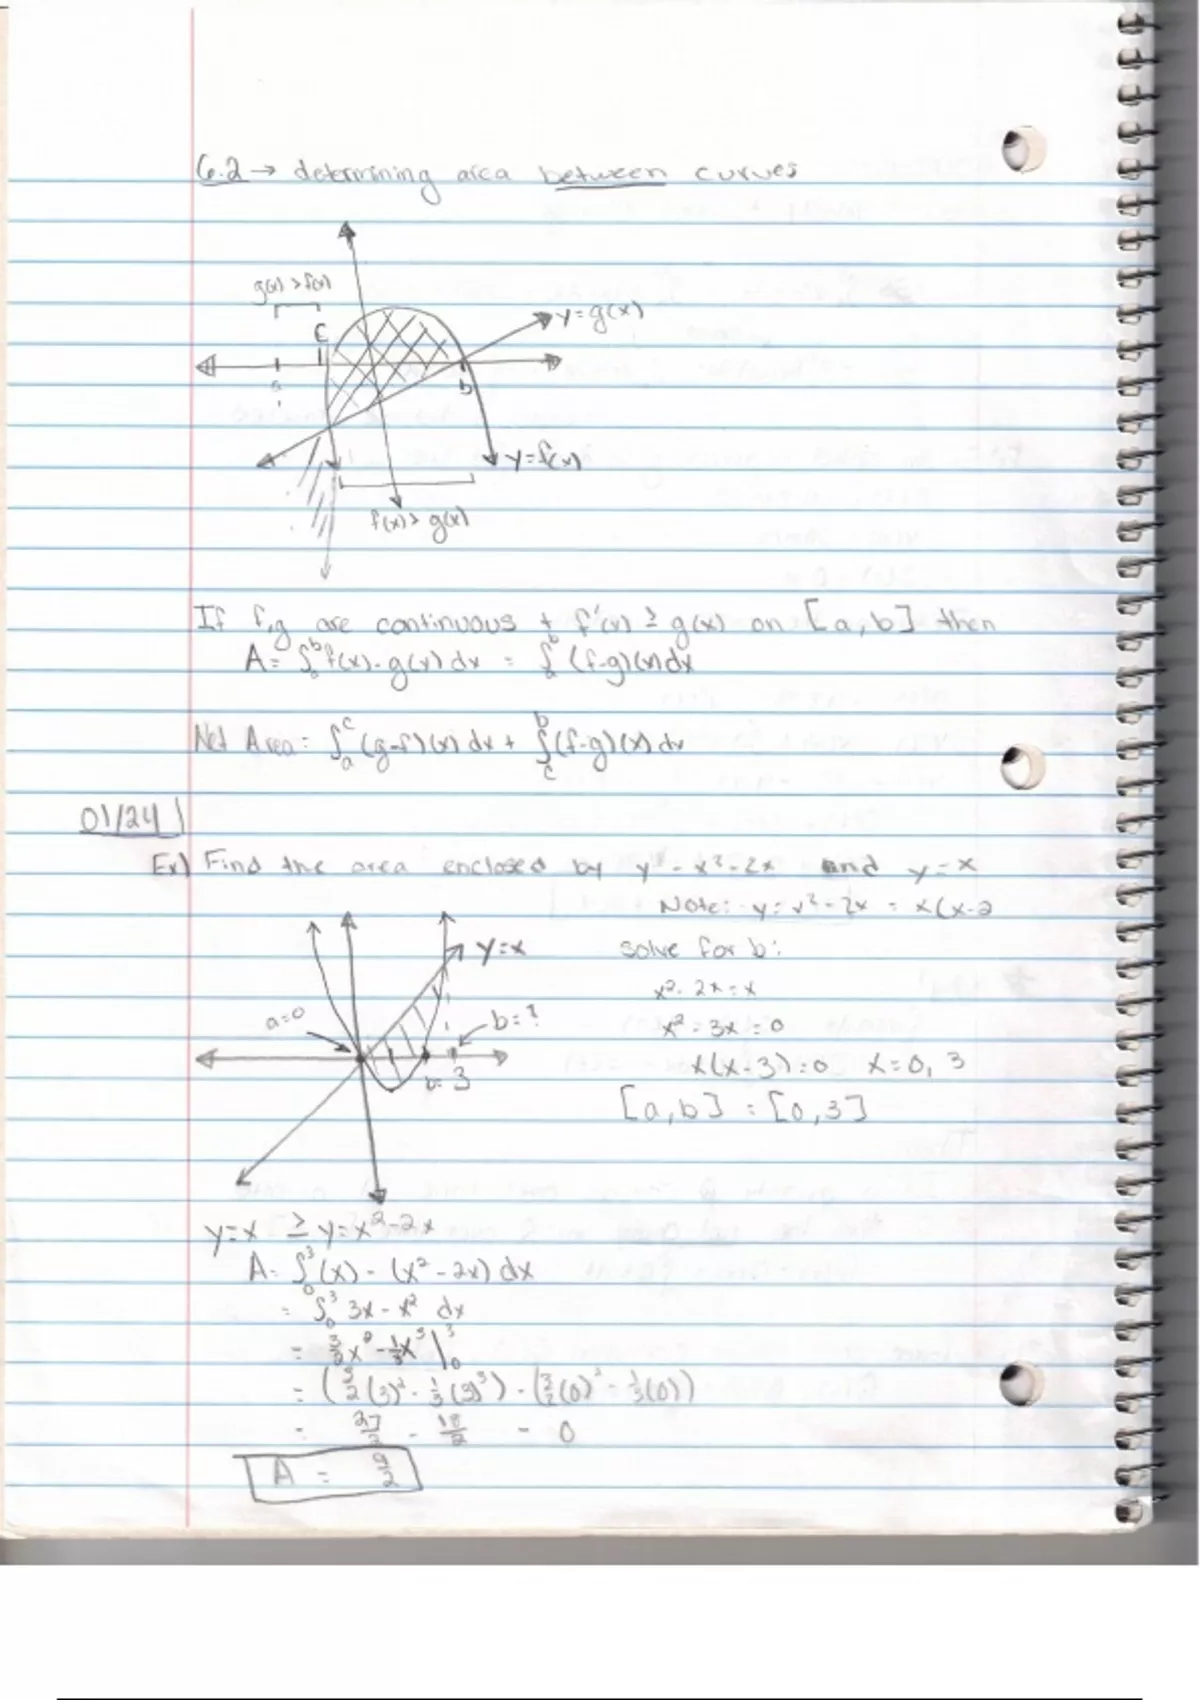 6.2 → determining area between curves
g(x) > f(x)
c
y=g(x)
a
b
y=f(x)
f(x)> g(x)
If f,g are continuous + f(x) ≥ g(x) on [a,b] then
A= ∫ₐᵇ f(x)-g(x) dx = ∫ₐᵇ (f-g)(x)dx
Net Area = ∫ₐᶜ (g-f)(x) dx + ∫꜀ᵇ (f-g)(x) dx
01/24
Ex) Find the area enclosed by y = x² - 2x and y = x
Note: y = x² - 2x = x(x-2
y=x
solve for b:
x² - 2x = x
a=0
b=?
x² - 3x = 0
x(x-3)=0 x=0, 3
b=3
[a,b] = [0,3]
y=x ≥ y=x²-2x
A= ∫₀³ (x) - (x² - 2x) dx
= ∫₀³ 3x - x² dx
= 3/2 x² - 1/3 x³ |₀³
= (3/2 (3)² - 1/3 (3)³) - (3/2 (0)² - 1/3 (0))
= 27/2 - 18/2 - 0
A = 9/2